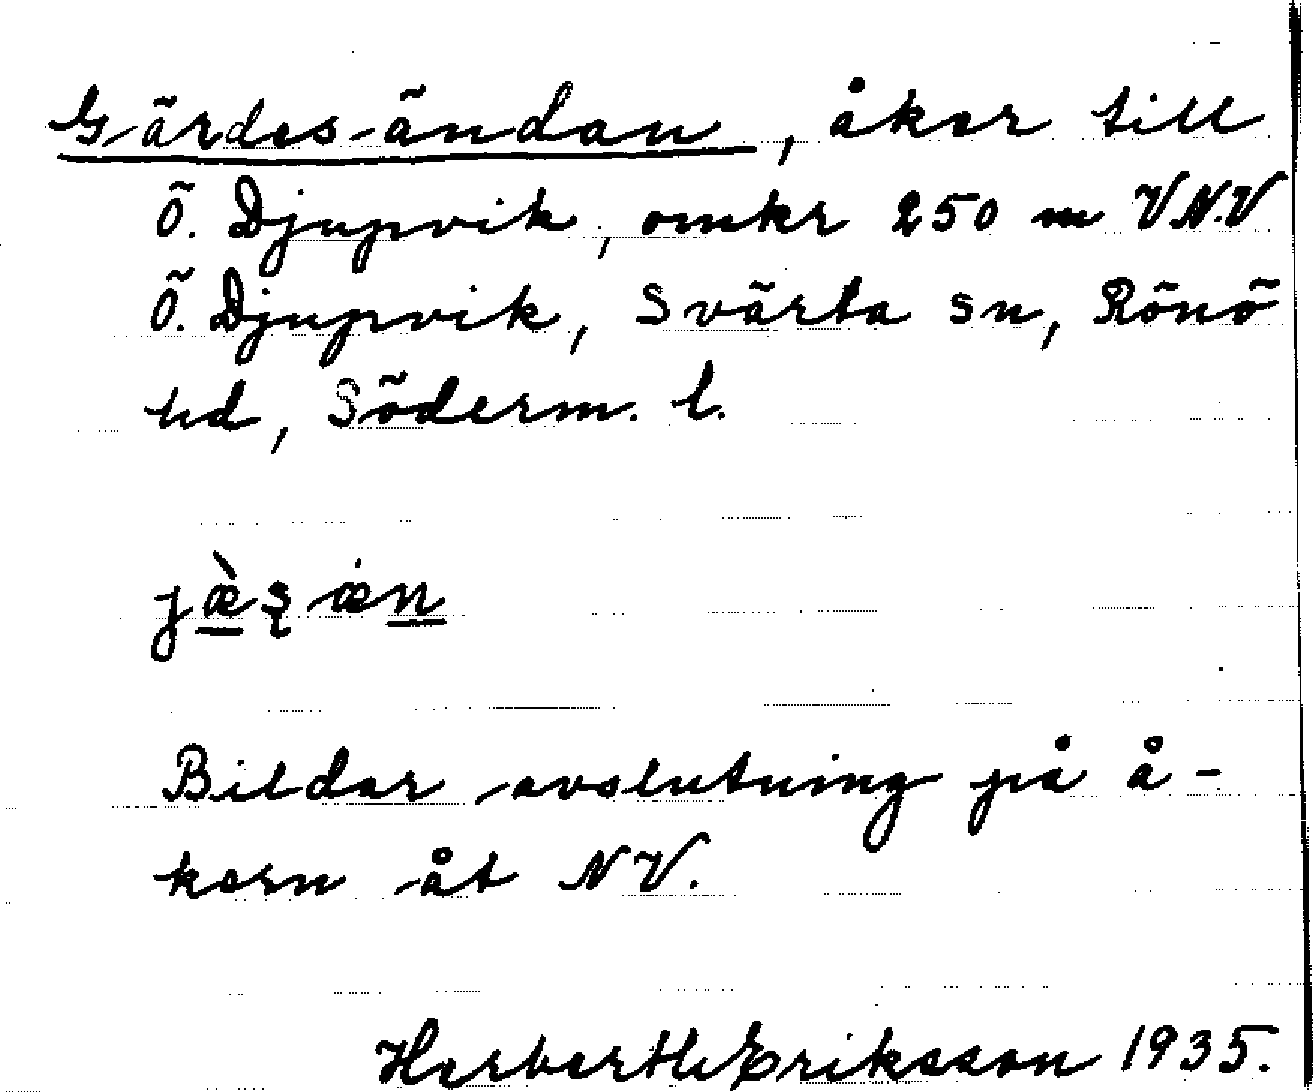 Gärdes-ändan, åker till
Ö. Djupvik, omkr 250 m V.N.V.
Ö. Djupvik, Svärta sn, Rönö
hd, Söderm. l.
Bildar avslutning på å-
kern åt NV.
Herbert Eriksson 1935.